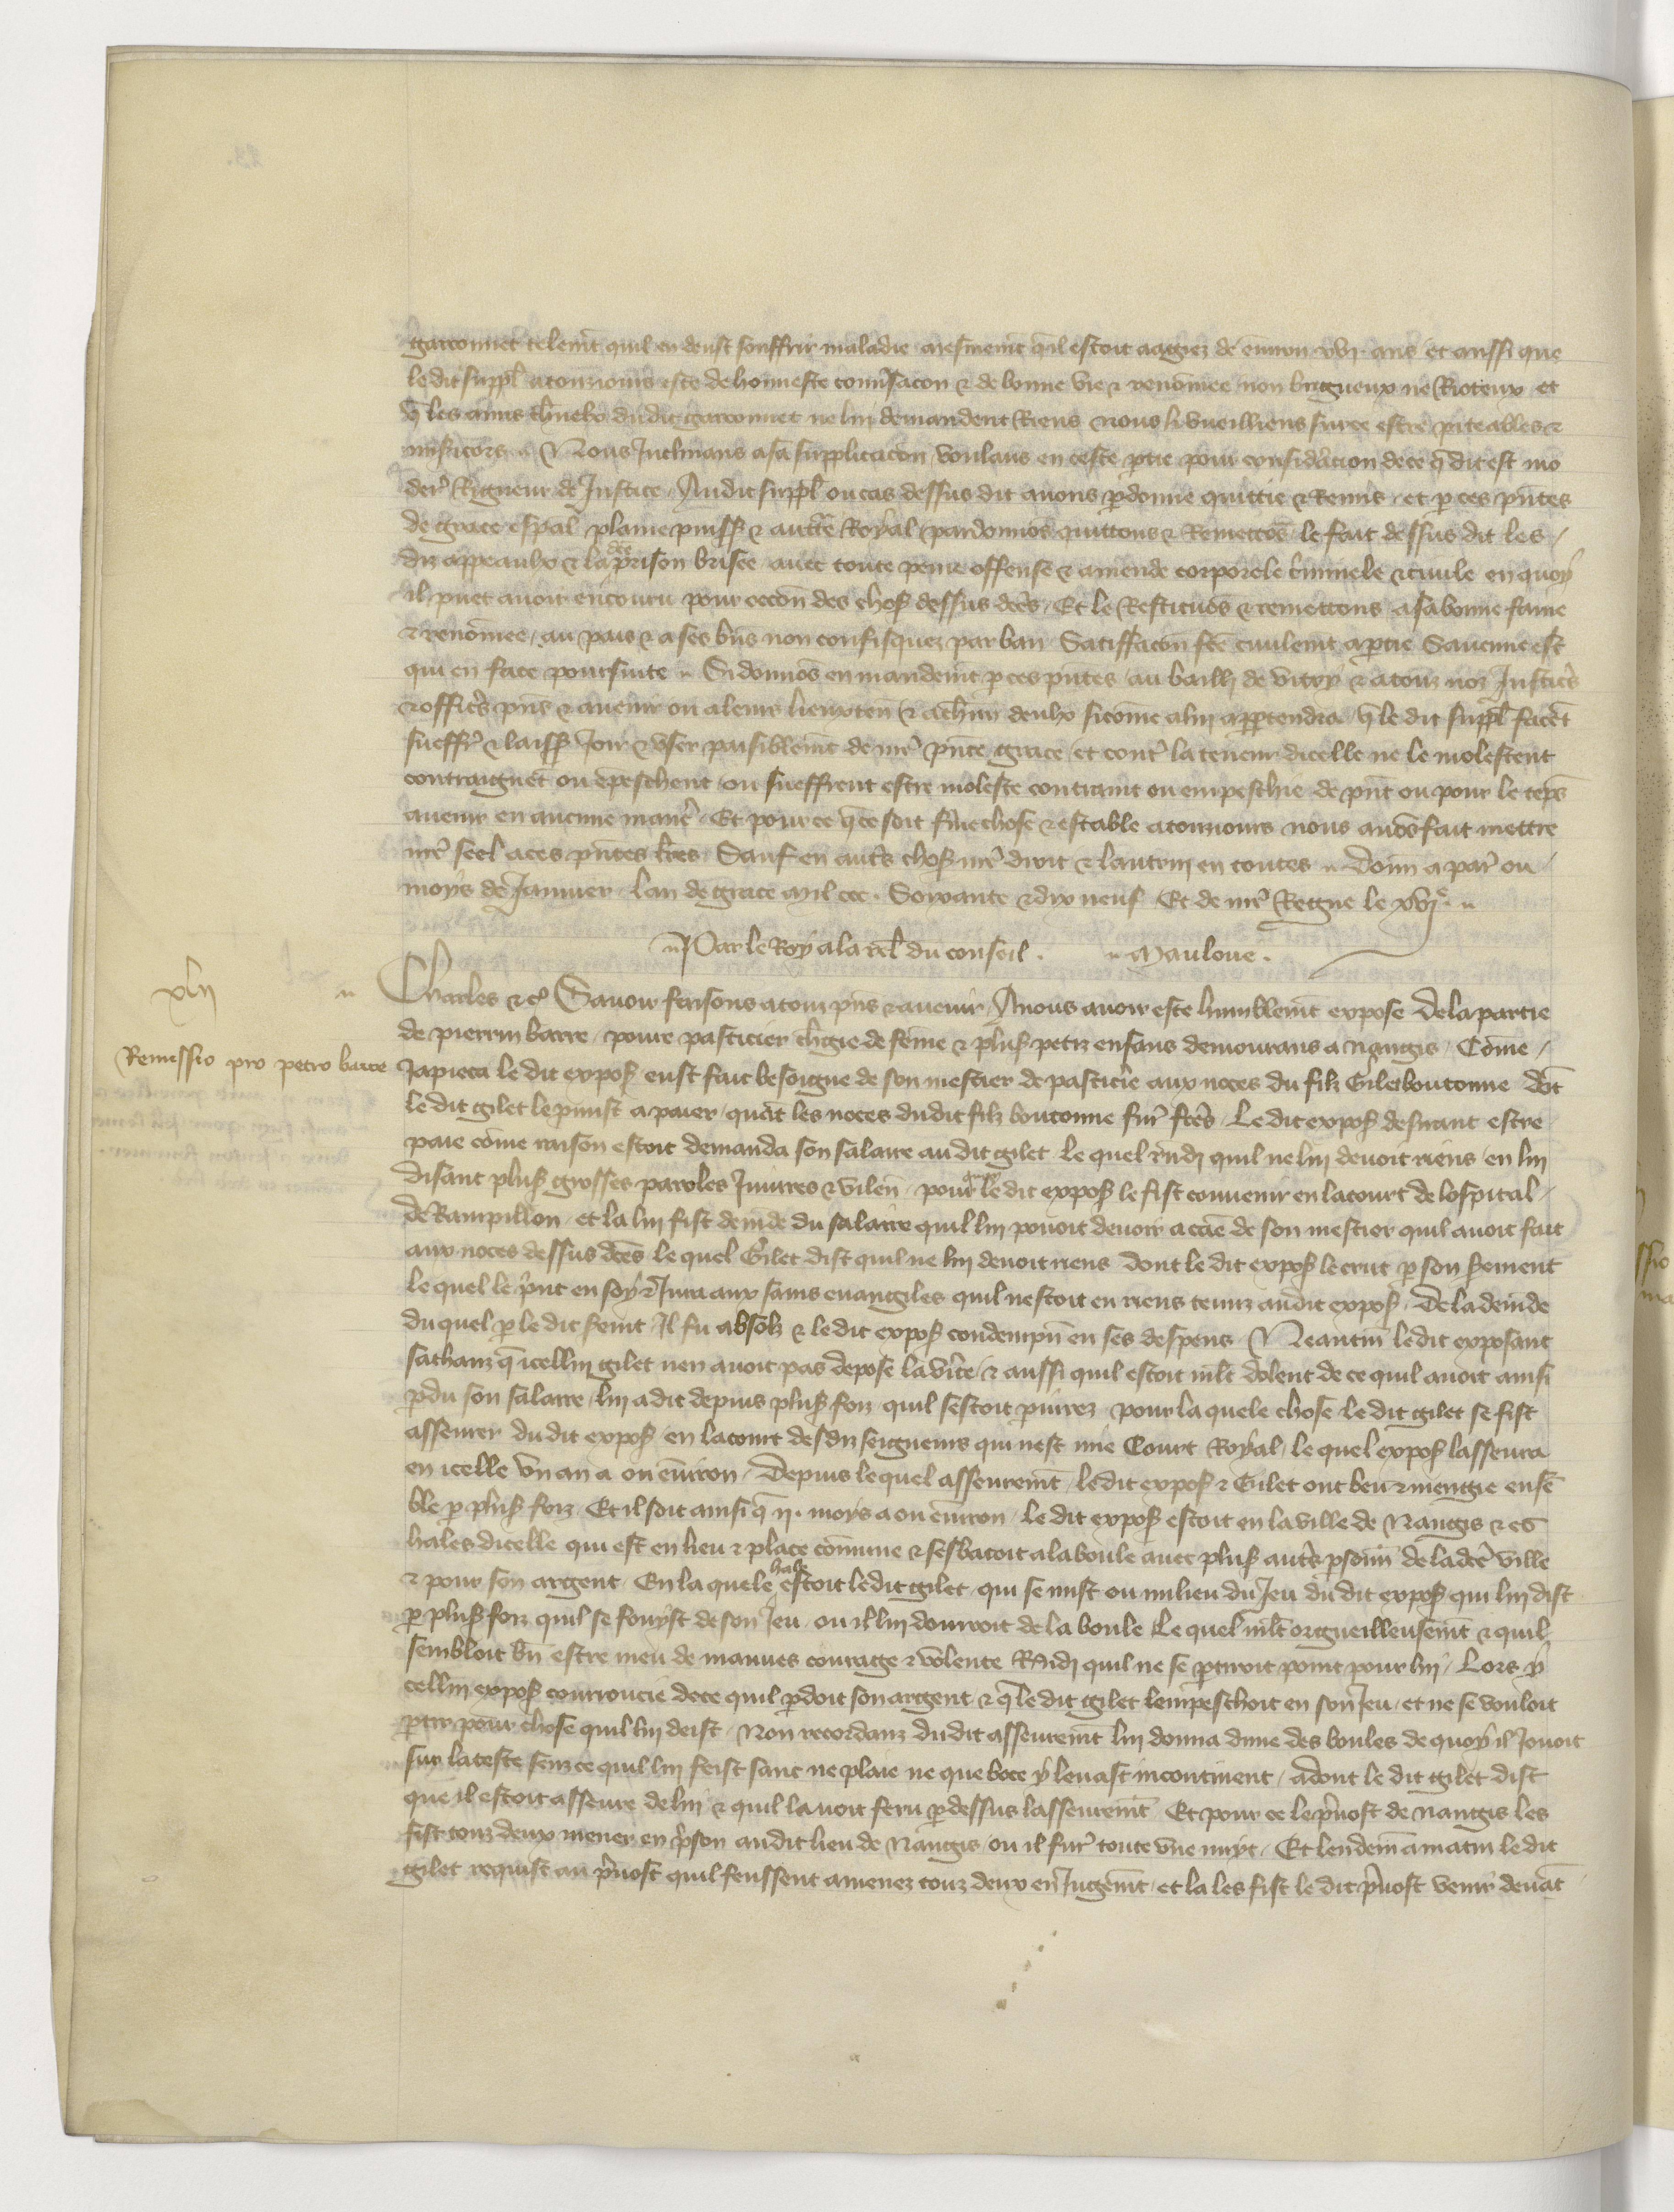 garconnet telemt quil en deust souffrir maladie mesmemt ql estoit aagiez de environ xvi ans et aussi que
le dit suppl a touzjours este de honneste convsacon & de bonne vie & renommee non brigueux ne Rioteux et
q les amis chnelx dudit garconnet ne lui demandent Riens nous li vueilliens sur ce estre piteables &
misicors. Nous Inclinans a sa supplicacion voulans en ceste ptie pour consideracion de ce q dit est mo
derer Rigueur de Justice Audit suppl ou cas dessus dit avons pdonne quittie & Remis et p ces pntes
de grace espal plaine puiss & auctte Royal pardonnos quittons & Remettos le fait dessus dit les
diz appeaulx & la dce prison brisee avec toute peine offense & amende corporele criminele & civile en quoy
il puet avoir encouru pour occon des choses dessus dces Et le Restituos & remettons a sa bonne fame
& renomee au pais & a ses bns non confisquez par ban Satisfacon fce civilemt a ptie Saucune est
qui en face poursuite Si donnos en mandemt p ces pntes au bailli de vitry & a touz noz Justices
& offices pns & avenir ou a leurs lieuxten & a chun deulx sicome a lui appertendra q le dit suppl facet
sueffrent & laissent Joir & user paisiblemt de nre pnte grace et contre la teneur dicelle ne le molestent
contraignet ou epeschent ou sueffrent estre moleste contraint ou empeschie de pnt ou pour le teps
avenir en aucune maniere Et pour ce q ce soit ferme chose & estable a touzjours nous avos fait mettre
nre seel a ces pntes lres Sauf en autres choses nre droit & lautrui en toutes Donn a Par ou
moys de Janvier lan de grace mil ccc. Soixante & dix neuf Et de nre Regne le xvje
Par le Roy a la rel du conseil. Mauloue.
xlij
Charles &c Savoir faisons a touz pns & avenir A nous avoir este humblemt expose De la partie
de pierrin barre povre pasticier chgie de feme & plus petiz enfans demourans a Nangis Come
Remissio pro petro barre
Ja pieca le dit expos eust fait besoigne de son mestier de pasticie aux noces du filz Gilet boutonne dot
le dit gilet le pmist a paier quat les noces dudit filz boutonne fur fces Le dit expos desirant estre
paie come raison estoit demanda son salaire au dit gilet le quel rndi quil ne lui devoit riens en lui
disant plus grosses paroles Injures & vilen pour quoy le dit expos le fist convenir en la court de lospital
de Rampillon et la lui fist demde du salaire quil lui povoit devoir a cae de son mestier quil avoit fait
aux noces dessus dces le quel Gilet dist quil ne lui devoit riens dont le dit expos le crut p son serement
le quel le print en soy & Jura aux sains euvangiles quil nestoit en riens tenuz audit expos De la demde
du quel p le dit seremt Il fu absolz & le dit expos condempn en ses despens Neantm le dit exposant
sachanz q icellui gilet nen avoit pas depose la verite & aussi quil estoit mlt dolent de ce quil avoit ainsi
pdu son salaire lui a dit depuis plus foiz quil sestoit pjurez pour la quele chose le dit gilet se fist
asseurer du dit expos en la court desdiz seigneurs qui nest mie Court Royal le quel expos lasseura
en icelle un an a ou environ Depuis lequel asseuremt le dit expos & Gilet ont beu & mengie ense
ble p plus foiz Et il soit ainsi q ij. moys a ou environ le dit expos estoit en la ville de Nangis & es
hales dicelle qui est en lieu & place comune & sesbatoit a la boule avec plus autres psonn de la dce ville
& pour son argent En la quele hale estoit le dit gilet qui se mist ou milieu du Jeu du dit expos qui lui dist
p plus foiz quil se fouyst de son Jeu ou il lui donrroit de la boule Le quel mlt orgueilleusemt & quil
sembloit bn estre meu de mauves courage & volente Rndi quil ne se ptiroit point pour lui Lors y
cellui expos courroucie de ce quil pdoit son argent & q le dit gilet lempeschoit en son Jeu et ne se vouloit
ptir pour chose quil lui deist Non recordanz dudit asseuremt lui donna dune des boules de quoy il Jouoit
sur la teste senz ce quil lui feist sanc ne plaie ne que boce y levast incontinent adont le dit gilet dist
que il estoit asseure de lui & quil lavoit feru pdessus lasseuremt Et pour ce le prvost de nangis les
fist touz deux mener en prison au dit lieu de Nangis ou il fur toute une nuyt Et lendemain matin le dit
gilet requist au prvost quil feussent amenez touz deux en Jugemt et la les fist le dit prvost venir devat